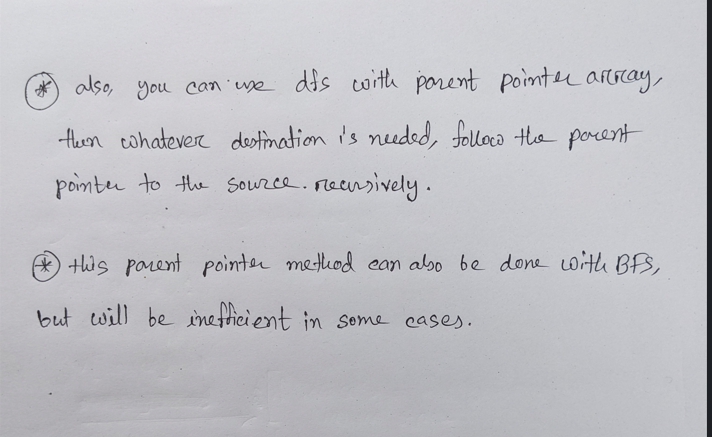 * also, you can use dfs with parent pointer array,
then whatever destination is needed, follow the parent
pointer to the source. recursively.
* this parent pointer method can also be done with BFS,
but will be inefficient in some cases.